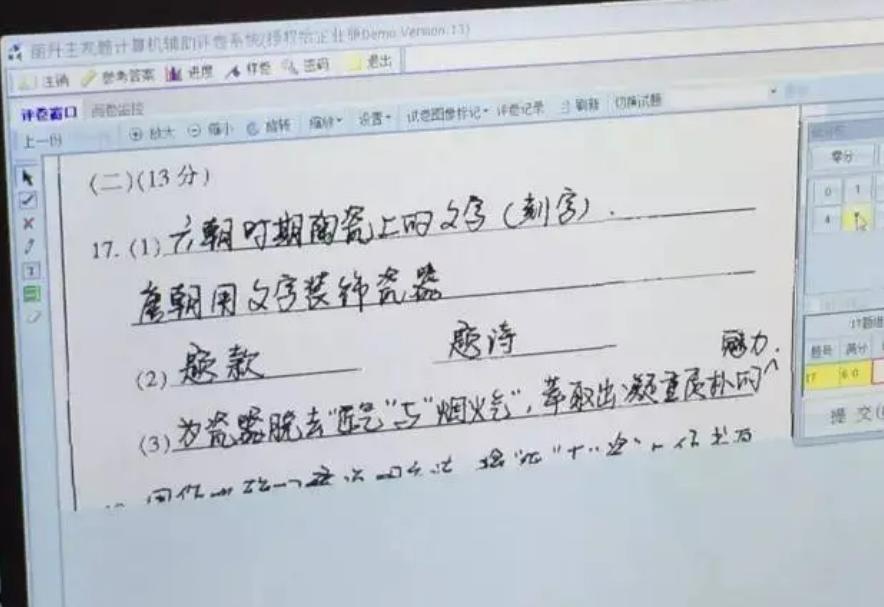 丽升主观题计算机辅助评卷系统(授权给企业版Demo Version 13)
注销 参考答案 进度 样卷 密码 退出
评卷窗口
上一份 放大 缩小 旋转 缩放 设置 试卷图像标记 评卷记录 刷新 切换试题
零分
0 1
4
(二)(13分)
17.(1)六朝时期陶瓷上的文字(刻字).
唐朝用文字装饰瓷器
(2)题款 题诗
(3)为瓷器脱去“匠气”与“烟火气”,萃取出凝重质朴的魅力.
题号 满分
17 6.0
提 交